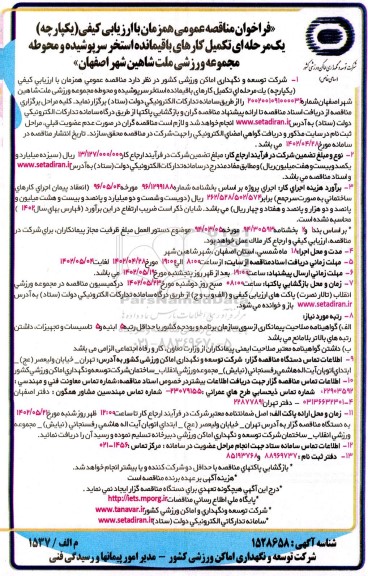 «فراخوان مناقصه عمومی همزمان با ارزیابی کیفی (یکپارچه)
یک مرحله ای تکمیل کارهای باقیمانده استخر سرپوشیده و محوطه
مجموعه ورزشی ملت شاهین شهر اصفهان»
شرکت توسعه و نگهداری اماکن ورزشی کشور
۱- شرکت توسعه و نگهداری اماکن ورزشی کشور در نظر دارد مناقصه عمومی همزمان با ارزیابی کیفی
(یکپارچه) یک مرحله ای تکمیل کارهای باقیمانده استخر سرپوشیده و محوطه مجموعه ورزشی ملت شاهین
شهر اصفهان شماره را از طریق سامانه تدارکات الکترونیکی دولت (ستاد) برگزار نماید. کلیه مراحل برگزاری
مناقصه از دریافت اسناد مناقصه تا ارائه پیشنهاد مناقصه گران و بازگشایی پاکتها از طریق درگاه سامانه تدارکات الکترونیکی
دولت (ستاد) به آدرس www.setadiran.ir انجام خواهد شد و لازم است مناقصه گران در صورت عدم عضویت قبلی، مراحل
ثبت نام در سایت مذکور و دریافت گواهی امضای الکترونیکی را جهت شرکت در مناقصه محقق سازند. تاریخ انتشار مناقصه در
سامانه ۱۴۰۲/۰۴/۲۸ می باشد.
۲- نوع و مبلغ تضمین شرکت در فرآیند ارجاع کار: مبلغ تضمین شرکت در فرآیند ارجاع کار ۱۳/۱۲۷/۰۰۰/۰۰۰ ریال (سیزده میلیارد و
یکصد و بیست و هفت میلیون ریال) و مطابق مفاد مندرج در سامانه تدارکات الکترونیکی دولت (ستاد) به آدرس www.setadiran.ir
و اسناد مناقصه می باشد.
۳- برآورد هزینه اجرای کار: اجرای پروژه بر اساس بخشنامه شماره ۹۶/۱۲۹۹۱۸۸ مورخه ۹۶/۰۵/۰۴ (انعقاد پیمان اجرای کارهای
ساختمانی به صورت سرجمع) برابر ۲۶۲/۵۲۸/۵۰۲/۵۷۴ ریال (دویست و شصت و دو میلیارد و پانصد و بیست و هشت میلیون و
پانصد و دو هزار و پانصد و هفتاد و چهار ریال) می باشد. شایان ذکر است ضریب ارتفاع در این برآورد (فهارس بهای سال ۱۴۰۲)
محاسبه نشده است.
مناقصه، ارزیابی کیفی و ارجاع کار ملاک عمل خواهد بود.
۴- مدت و محل اجرا: ۱۸ ماه شمسی، استان اصفهان، شهر شاهین شهر
۵- مهلت زمانی دریافت اسناد مناقصه از سایت: از ساعت ۸:۰۰ الی ۱۹:۰۰ تاریخ ۱۴۰۲/۰۴/۲۸ لغایت ۱۴۰۲/۰۵/۰۲
۶- مهلت زمانی ارسال پیشنهاد: ساعت ۱۹:۰۰ بعد از ظهر روز پنجشنبه مورخ ۱۴۰۲/۰۵/۱۹ می باشد.
۷- زمان و محل بازگشایی پاکتها: ساعت ۰۸:۰۰ صبح روز دوشنبه مورخ ۱۴۰۲/۰۵/۲۳ در کمیسیون مناقصه در مجموعه ورزشی
انقلاب (تالار نصرت) پاکت های ارزیابی کیفی و (الف و ب و ج) از طریق درگاه سامانه تدارکات الکترونیکی دولت (ستاد) به آدرس
www.setadiran.ir باز و خوانده می شود.
۸- رتبه مورد نیاز:
الف) گواهینامه صلاحیت پیمانکاری از سوی سازمان برنامه و بودجه کشور با حداقل رتبه ۵ ابنیه و ۵ تاسیسات و تجهیزات، داشتن
رتبه های بالاتر بلامانع می باشد
ب) داشتن گواهینامه معتبر صلاحیت ایمنی پیمانکاران از وزارت تعاون، کار و رفاه اجتماعی الزامی می باشد
۹- اطلاعات تماس دستگاه مناقصه گزار: شرکت توسعه و نگهداری اماکن ورزشی کشور به آدرس: تهران_ خیابان ولیعصر (عج)_
ابتدای اتوبان آیت اله هاشمی رفسنجانی (نیایش)_ مجموعه ورزشی انقلاب_ ساختمان شرکت توسعه و نگهداری اماکن ورزشی کشور
۱۰- اطلاعات تماس مناقصه گزار جهت دریافت اطلاعات بیشتر در خصوص اسناد مناقصه: شماره تماس معاونت فنی و مهندسی:
۱۱- زمان و محل ارائه پاکت الف: اصل ضمانتنامه معتبر شرکت در فرآیند ارجاع کار تا ساعت ۱۲:۰۰ ظهر روز شنبه مورخ ۱۴۰۲/۰۵/۲۱
به دستگاه مناقصه گزار به آدرس تهران_ خیابان ولیعصر (عج)_ ابتدای اتوبان آیت اله هاشمی رفسنجانی (نیایش)_ مجموعه
ورزشی انقلاب_ ساختمان شرکت توسعه و نگهداری اماکن ورزشی دبیرخانه تسلیم نموده و رسید آن را دریافت نمایند.
۱۲- اطلاعات تماس سامانه ستاد جهت انجام مراحل عضویت در سامانه: مرکز تماس ۱۴۵۶-۰۲۱
۱۳- دفتر ثبت نام: ۸۸۹۶۹۷۳۷ و ۸۵۱۹۳۷۶۸
*بازگشایی پاکتهای مناقصه با حداقل دو شرکت کننده و یا بیشتر انجام خواهد شد.
*هزینه آگهی بر عهده برنده مناقصه است
*درج این آگهی هیچگونه تعهدی برای دستگاه مناقصه گزار ایجاد نمی نماید.
*پایگاه ملی اطلاع رسانی مناقصات http://iets.mporg.ir
*شرکت توسعه و نگهداری اماکن ورزشی کشور www.tanavar.ir
*سامانه تدارکاتی الکترونیکی دولت (ستاد) www.setadiran.ir
شناسه آگهی: ۱۵۲۸۶۵۸
م الف / ۱۵۳۷
شرکت توسعه و نگهداری اماکن ورزشی کشور - مدیر امور پیمانها و رسیدگی فنی